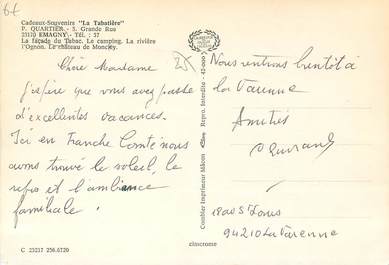 64
Cadeaux-Souvenirs "La Tabatière"
P. QUARTIER - 5, Grande Rue
25170 EMAGNY - Tél. : 37
La façade du Tabac. Le camping. La rivière
l'Ognon. Le château de Moncley.
Chère Madame
J'espère que vous avez passé
d'excellentes vacances.
Ici en Franche Comté nous
avons trouvé le soleil, le
repos et l'ambiance
familiale.
C 25217 256.0720
Combier Imprimeur Mâcon
Repro. Interdite - 42-000
25
Nous rentrons bientôt à
la Varenne
Amitiés
18 av St Louis
94210 La Varenne
cimcrome